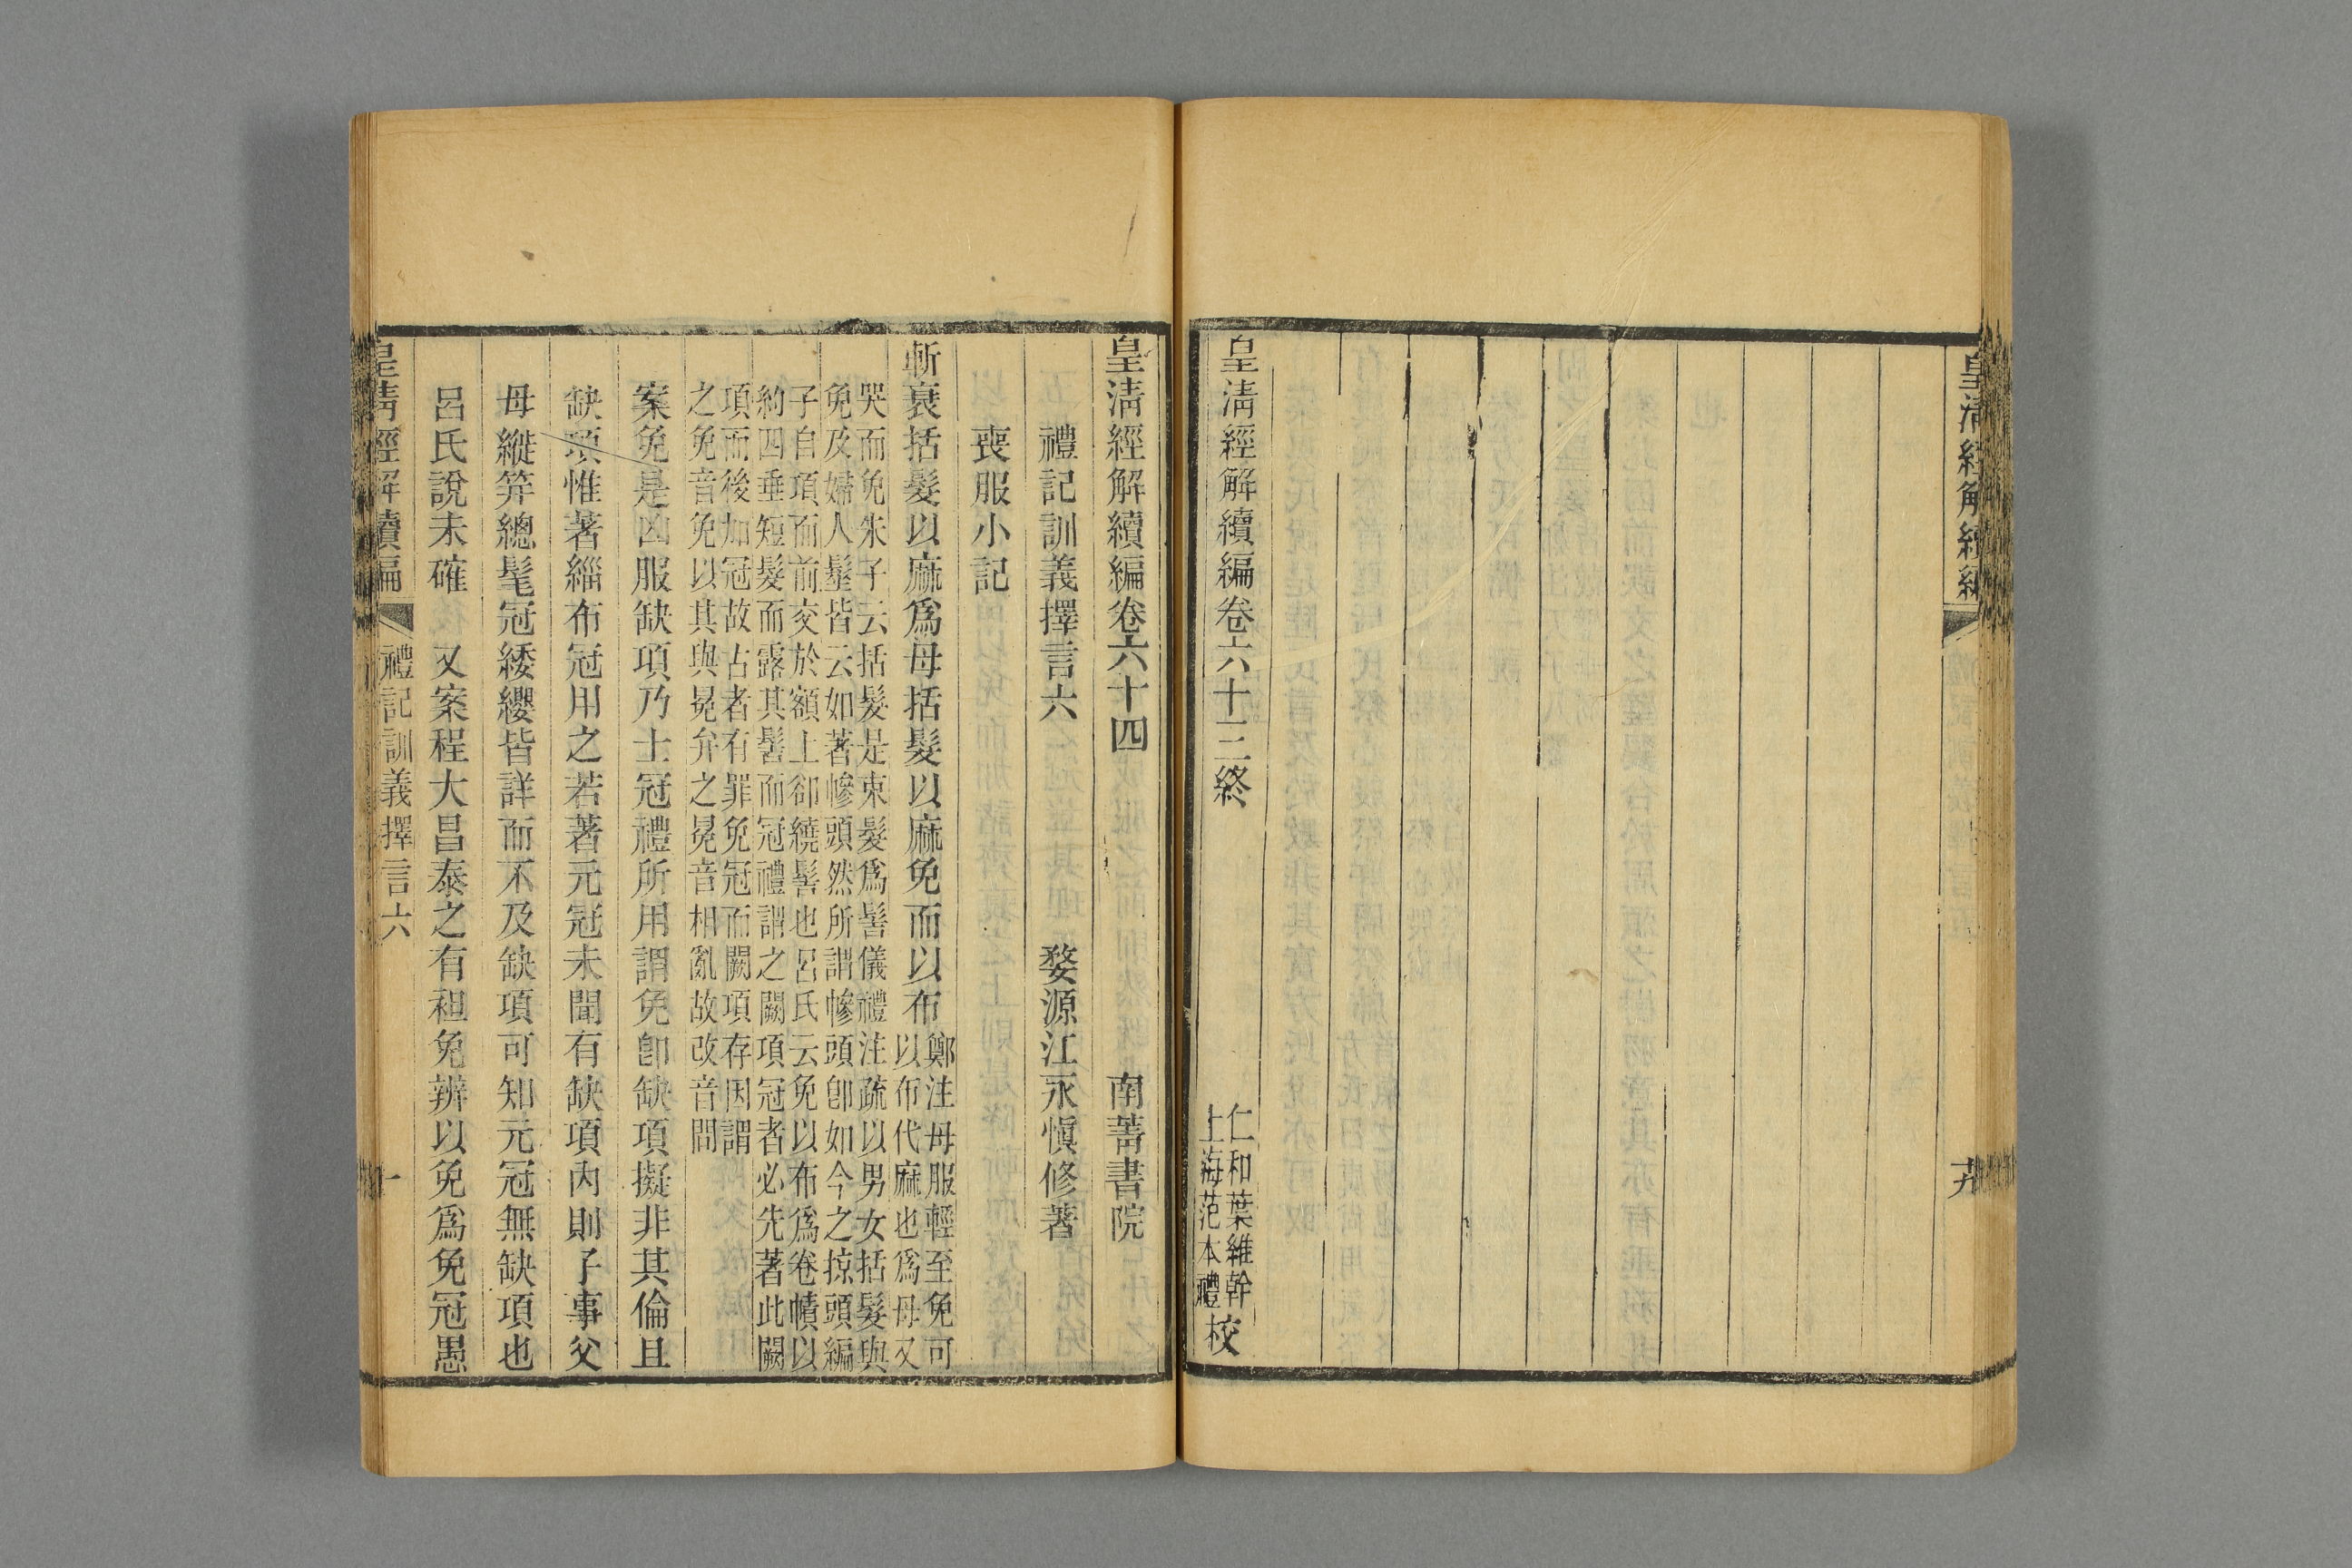 皇清經解續編
皇清經解續編卷六十三終
仁和葉維幹
上海范本禮
校
皇清經解續編卷六十四
南菁書院
禮記訓義擇言六
婺源江永愼修著
喪服小記
斬衰括髮以麻爲母括髮以麻免而以布
鄭注母服輕至免可
以布代麻也爲母又
哭而免朱子云括髮是束髮爲髻儀禮注疏以男女括髮與
免及婦人髽皆云如著幓頭然所謂幓頭卽如今之掠頭編
子自項而前交於額上卻繞髻也呂氏云免以布爲卷幘以
約四垂短髮而露其髻而冠禮謂之闕項冠者必先著此闕
項而後加冠故古者有罪免冠而闕項存因謂
之免音免以其與冕弁之冕音相亂故改音問
案免是凶服缺項乃士冠禮所用謂免卽缺項擬非其倫且
缺項惟著緇布冠用之若著元冠未聞有缺項內則子事父
母縰笄總髦冠緌纓皆詳而不及缺項可知元冠無缺項也
呂氏說未確　又案程大昌泰之有袒免辨以免爲免冠愚
皇清經解續編
禮記訓義擇言六
一